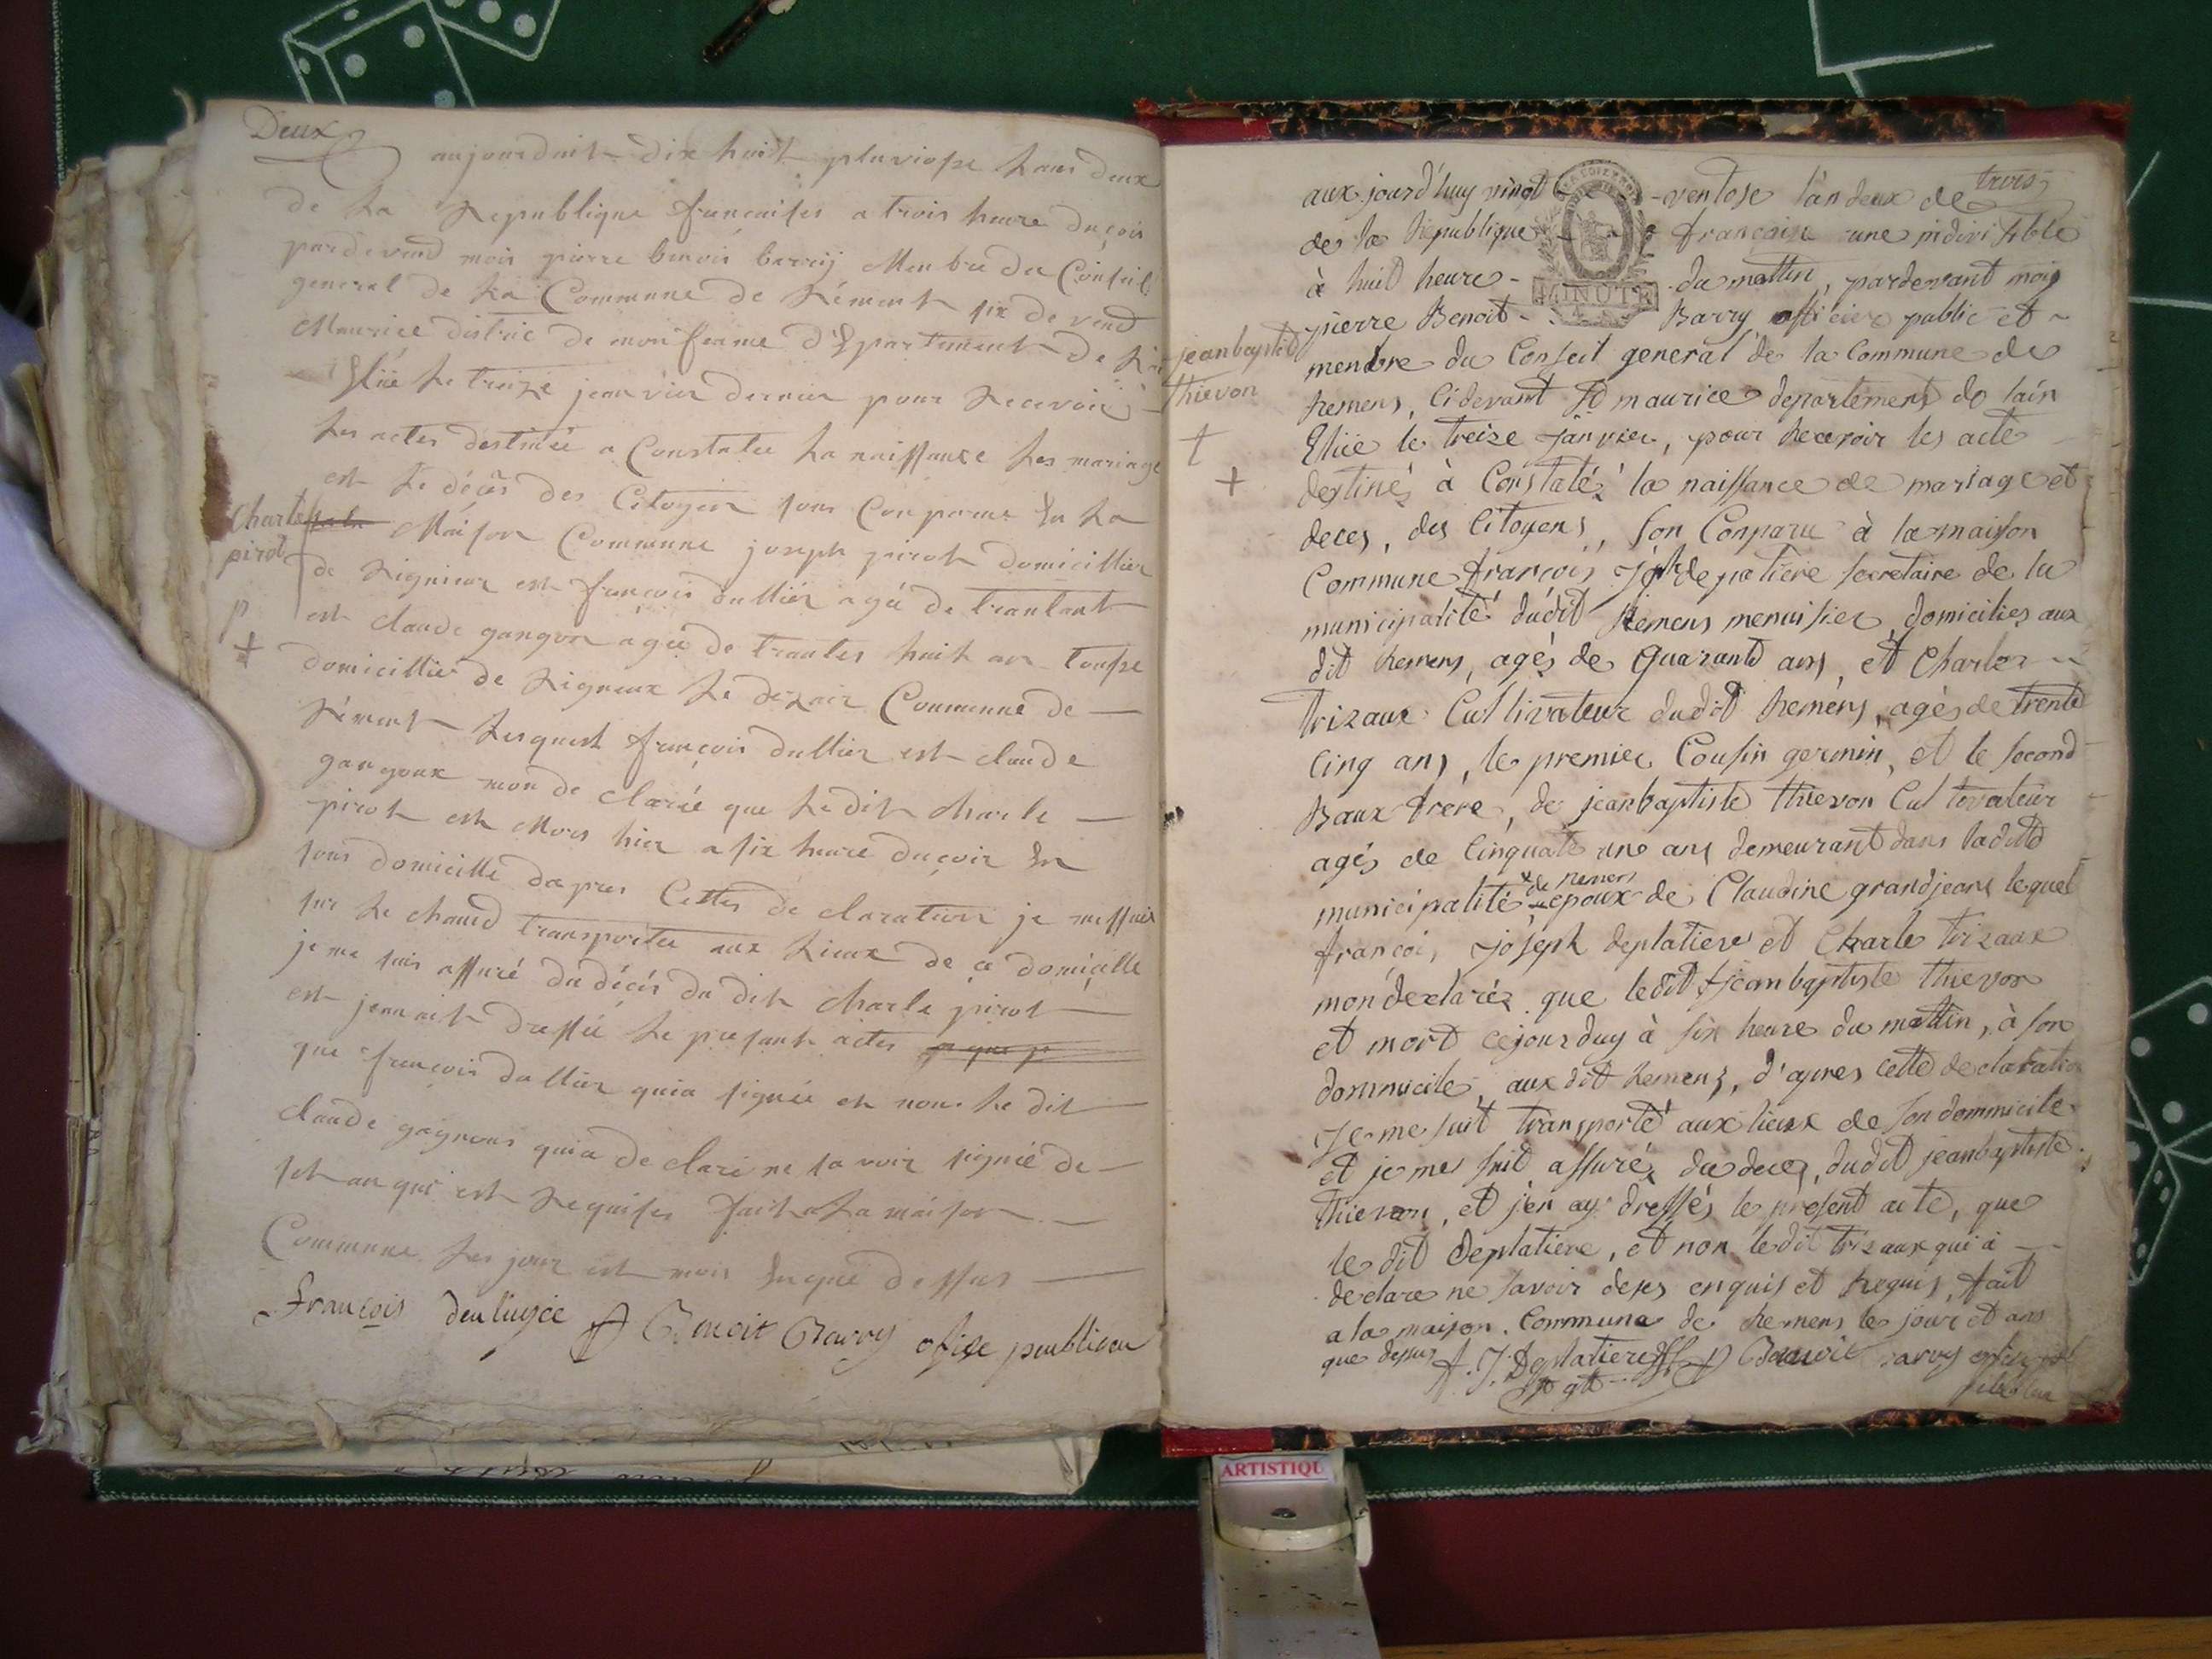 Deux
aujourduit dix huit pluviosse Lans deux
de La Republique francaises a trois heure du çoir
pardevend moi pierre benoit barry Menbre du Conseil
general de La Commune de Rémens six de vend
Maurice distric de monferme d'Epartement de L'in
Eliée Le treize jeanvier dernier pour Recevoir
Les actes destinée a Constatee La naissance Les mariage
est Le décés des Citoyen sons Conparus En La
Charle pirot
Maison Commune joseph pirot domicillier
de Rignieux est françois dullier agée de trantant
p
est claude gangon agée de trantes huit an tousse
+
domicillier de Rigneux Le dezair Commune de
Rémens Lesquest françois dullier est claude
gangoux mon de clarée que Le dit charle
pirot est Mors hier a six heure duçoir En
sons domicille dapres Cettes dé claration je messuis
sur Le chand transportee aux Lieux de ce domicille
je me suis assuré du décés du dit charle pirot
est jennait dressée Le présant actes
que francois dullier quia signée et non Le dit
claude gagneux quia de claré ne savoir signié de
set an qui est Requises fait a La maison
Commune Les jour est mois En que dessus
François P Benoit Barry ofise peublicou
trois
aux jourd'huy vingt ventose l'an deux de
de la Republique francaise une indivisible
MINUTE
à huit heure du mattin, pardevant moy
pierre Benoit Barry officier public et
jeanbaptiste
menbre du Conseil general de la Commune de
thievon
Remens, Cidevant St maurice departement de lain
Eliée le treize janvier, pour Recevoir les acte
t
+
destinés à Constatés la naissance de mariage et
deces, des Citoyens, son Conparu à la maison
Commune françois Jph deplatiere secretaire de la
municipalité dudit Remens menuisier, domicilies aux
dit Remens, agés de Quarante ans, et Charles
trizaux Cultivateur dudit Remens, agés de trente
Cinq ans, le premier Cousin germin, et le second
Baux frere, de jeanbaptiste thievon Cultivateur
agés de Cinquate une ans demeurant dans laditte
de Remens
municipalité epoux de Claudine grandjeans lequel
francois joseph deplatiere et Charle trizaux
mon déclarés que ledit jeanbaptiste thievon
et mort cejourduy à six heure du mattin, à son
dommicile, aux dit Remens, d'apres cette declaration
Je me suit transporté aux lieux de son dommicile
et je me suit assurés du deces, dudit jeanbaptiste
thievon, et j'en ay dressés le present acte, que
le dit deplatiere, et non ledit trizaux qui à
declare ne savoir de ses enquis et Requis, fait
a la maison Commune de Remens le jour et ans
que dessus F. J. Deplatiere P Benoit barry
ARTISTIQU